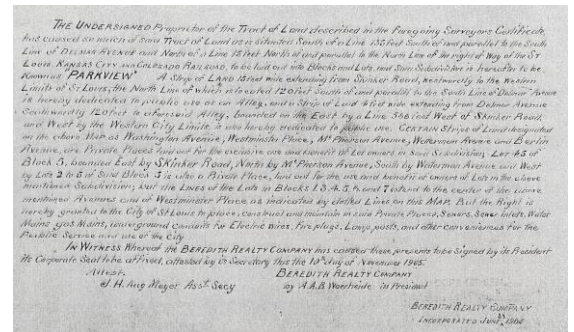 THE UNDERSIGNED Proprietor of the Tract of Land described in the Foregoing Surveyors Certificate,
has caused so much of said Tract of Land as is situated South of a Line 135 feet South of and parallel to the South
Line of DELMAR AVENUE and North of a Line 15 feet North of and parallel to the North Line of the right of Way of the ST
LOUIS KANSAS CITY AND COLORADO RAILROAD, to be laid out into Blocks and Lots, and Said Subdivision is hereafter to be
Known as "PARKVIEW" A Strip of LAND 15 feet wide extending from Skinker Road, westwardly to the Western
Limits of St Louis, the North Line of which is located 120 feet South of and parallel to the South Line of Delmar Avenue
is hereby dedicated to public use as an Alley, and a Strip of Land wide extending from Delmar Avenue
Southwardly 120 feet to aforesaid Alley, bounded on the East by a Line West of Skinker Road,
and West by the Western City Limits, is also hereby dedicated to public use. CERTAIN Strips of Land designated
on the above MAP as Washington Avenue, Westminster Place, McPherson Avenue, Waterman Avenue and Berlin
Avenue, are Private Places laid out for the exclusive use and benefit of Lot owners in said Subdivision, Lot of
Block 5, bounded East by SKinker Road, North by McPherson Avenue, South by Waterman Avenue and West
by Lots 2 in 5 of said Block 5 is also a Private Place, laid out for the use and benefit of owners of Lots in the above
mentioned Subdivision, but the Lines of the Lots in Blocks 1.3.4.5. and 7 extend to the center of the above
mentioned Avenues and of Westminster Place as indicated by dotted Lines on this MAP. But the Right is
hereby granted to the City of St Louis to place, construct and maintain in said Private Places, Sewers, Sewer inlets, Water
Mains gas Mains, underground conduits for Electric Wires, fire plugs, Lamp posts, and other conveniences for the
Public Service and use of the City.
IN WITNESS Whereof the BEREDITH REALTY COMPANY has caused these presents to be Signed by its President
its Corporate Seal to be affixed, attested by its Secretary this the 10th day of November 1905.
Attest. BEREDITH REALTY COMPANY
H. Aug Meyer Asst Secy by A.A.B. Woerheide President
BEREDITH REALTY COMPANY
INCORPORATED JUNE